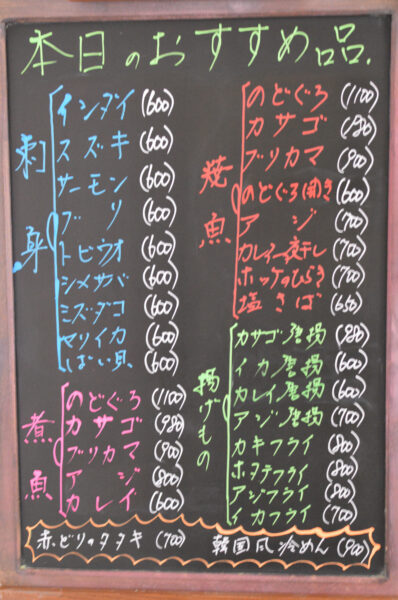 本日のおすすめ品.
刺身
インダイ (600)
スズキ (600)
サーモン (600)
ブリ (600)
トビウオ (600)
シメサバ (600)
ミズダコ (600)
ヤリイカ (600)
ばい貝 (600)
煮魚
のどぐろ (1100)
カサゴ (980)
ブリカマ (900)
アジ (800)
カレイ (600)
焼魚
のどぐろ (1100)
カサゴ (980)
ブリカマ (900)
のどぐろ開き (600)
アジ (700)
カレイ一夜干し (700)
ホッケのひらき (700)
塩さば (650)
揚げもの
カサゴ唐揚 (980)
イカ唐揚 (600)
カレイ唐揚 (600)
アジ唐揚 (700)
カキフライ (800)
ホタテフライ (800)
アジフライ (800)
イカフライ (700)
赤どりのタタキ (700)
韓国風冷めん (900)